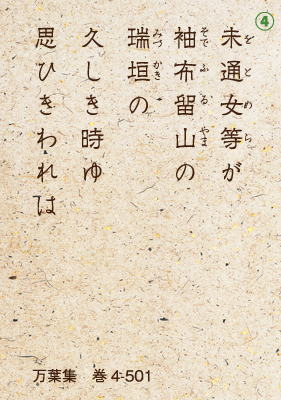 ④
未通女等が
をとめら
袖布留山の
そでふるやま
瑞垣の
みづかき
久しき時ゆ
思ひきわれは
万葉集 巻4-501